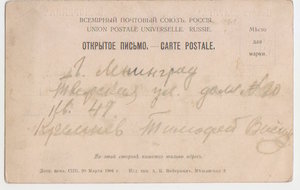 ВСЕМІРНЫЙ ПОЧТОВЫЙ СОЮЗЪ. РОССІЯ.
UNION POSTALE UNIVERSELLE. RUSSIE.
ОТКРЫТОЕ ПИСЬМО. — CARTE POSTALE.
Мѣсто
для
марки.
г. Ленинград
Тверская ул. дом № 20
кв. 49
Тимофей
На этой сторонѣ пишется только адресъ.
Дозв. ценз. СПБ. 20 Марта 1904 г.